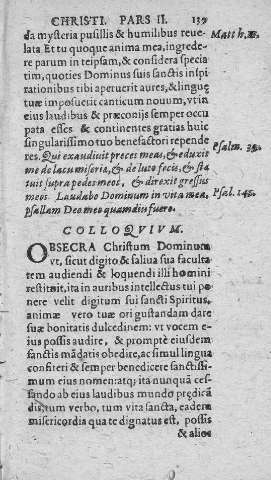 CHRISTI. PARS II. 139
da mysteria pusillis & humilibus reue-
lata. Et tu quoque anima mea, ingrede-
re parum in teipsam, & considera specia
tim, quoties Dominus suis sanctis inspi
rationibus tibi aperuerit aures, & linguę
tuæ imposuerit canticum nouum, vt in
eius laudibus & præconijs semper occu
pata esses & continentes gratias huic
singularissimo tuo benefactori repende
res. Qui exaudiuit preces meas, & eduxit
me de lacu miseriæ, & de luto fecis, & sta
tuit supra pedes meos, & direxit gressus
meos. Laudabo Dominum in vita mea,
psallam Deo meo quamdiu fuero.
Matth.
Psalm. 39.
Psal. 145.
COLLOQVIVM.
OBSECRA Christum Dominum
vt, sicut digito & saliua sua faculta
tem audiendi & loquendi illi homini
restituit, ita in auribus intellectus tui po
nere velit digitum sui sancti Spiritus,
animæ vero tuæ ori gustandam dare
suæ bonitatis dulcedinem: vt vocem e-
ius possis audire, & promptè eiusdem
sanctis mādatis obedire, ac simul lingua
confiteri & semper benedicere sanctissi-
mum eius nomen: atq; ita nunquā ces-
sando ab eius laudibus mundo prędicā
dis, tum verbo, tum vita sancta, eadem
misericordia qua te dignatus est, possis
& alios